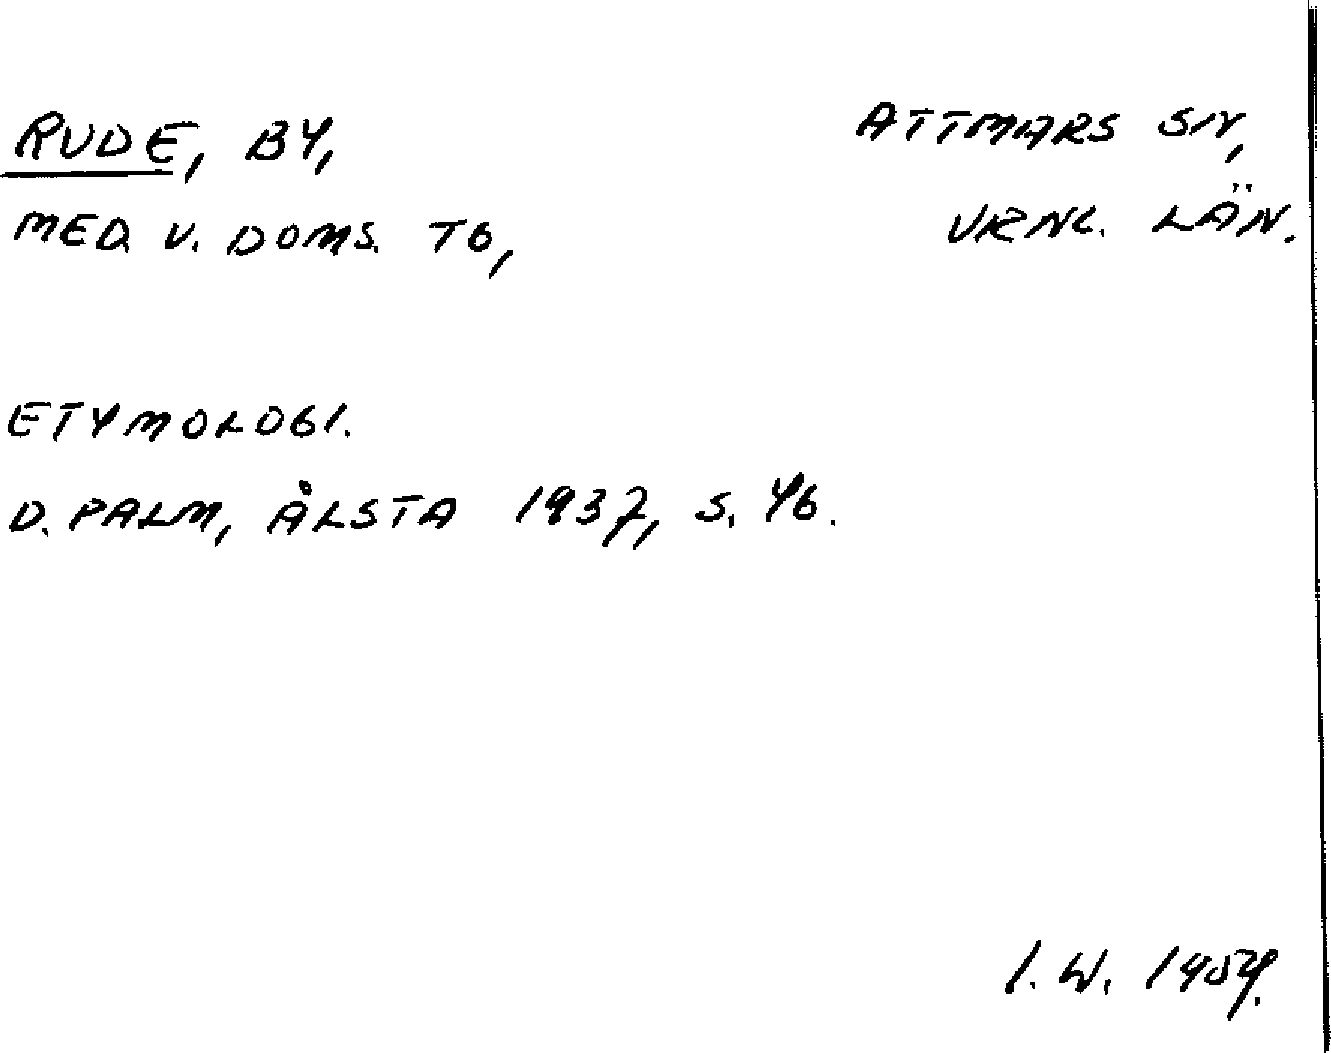 RUDE, BY,
MED. V. DOMS. TG,
ATTMARS SN,
VRNL. LÄN.
ETYMOLOGI.
D. PALM, ÅLSTA 1937, S. 46.
I. W.